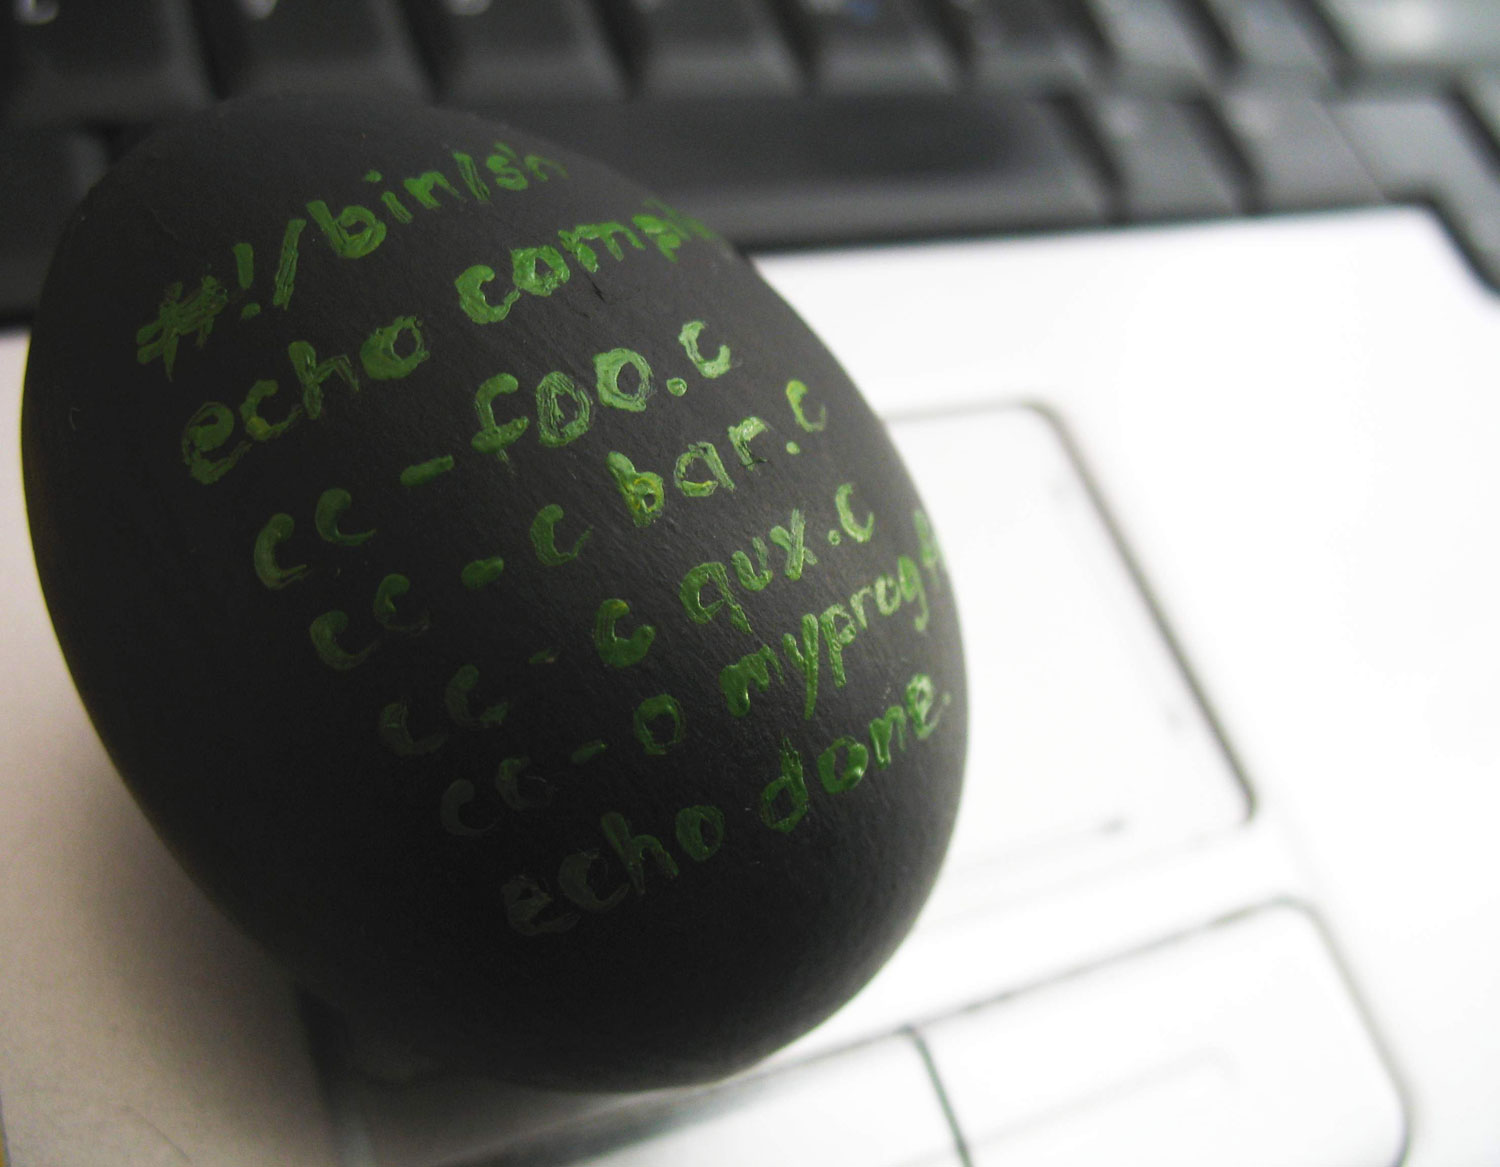 #!/bin/sh
echo
cc - foo.c
cc - c bar.c
cc - c qux.c
cc - o myprog
echo done.